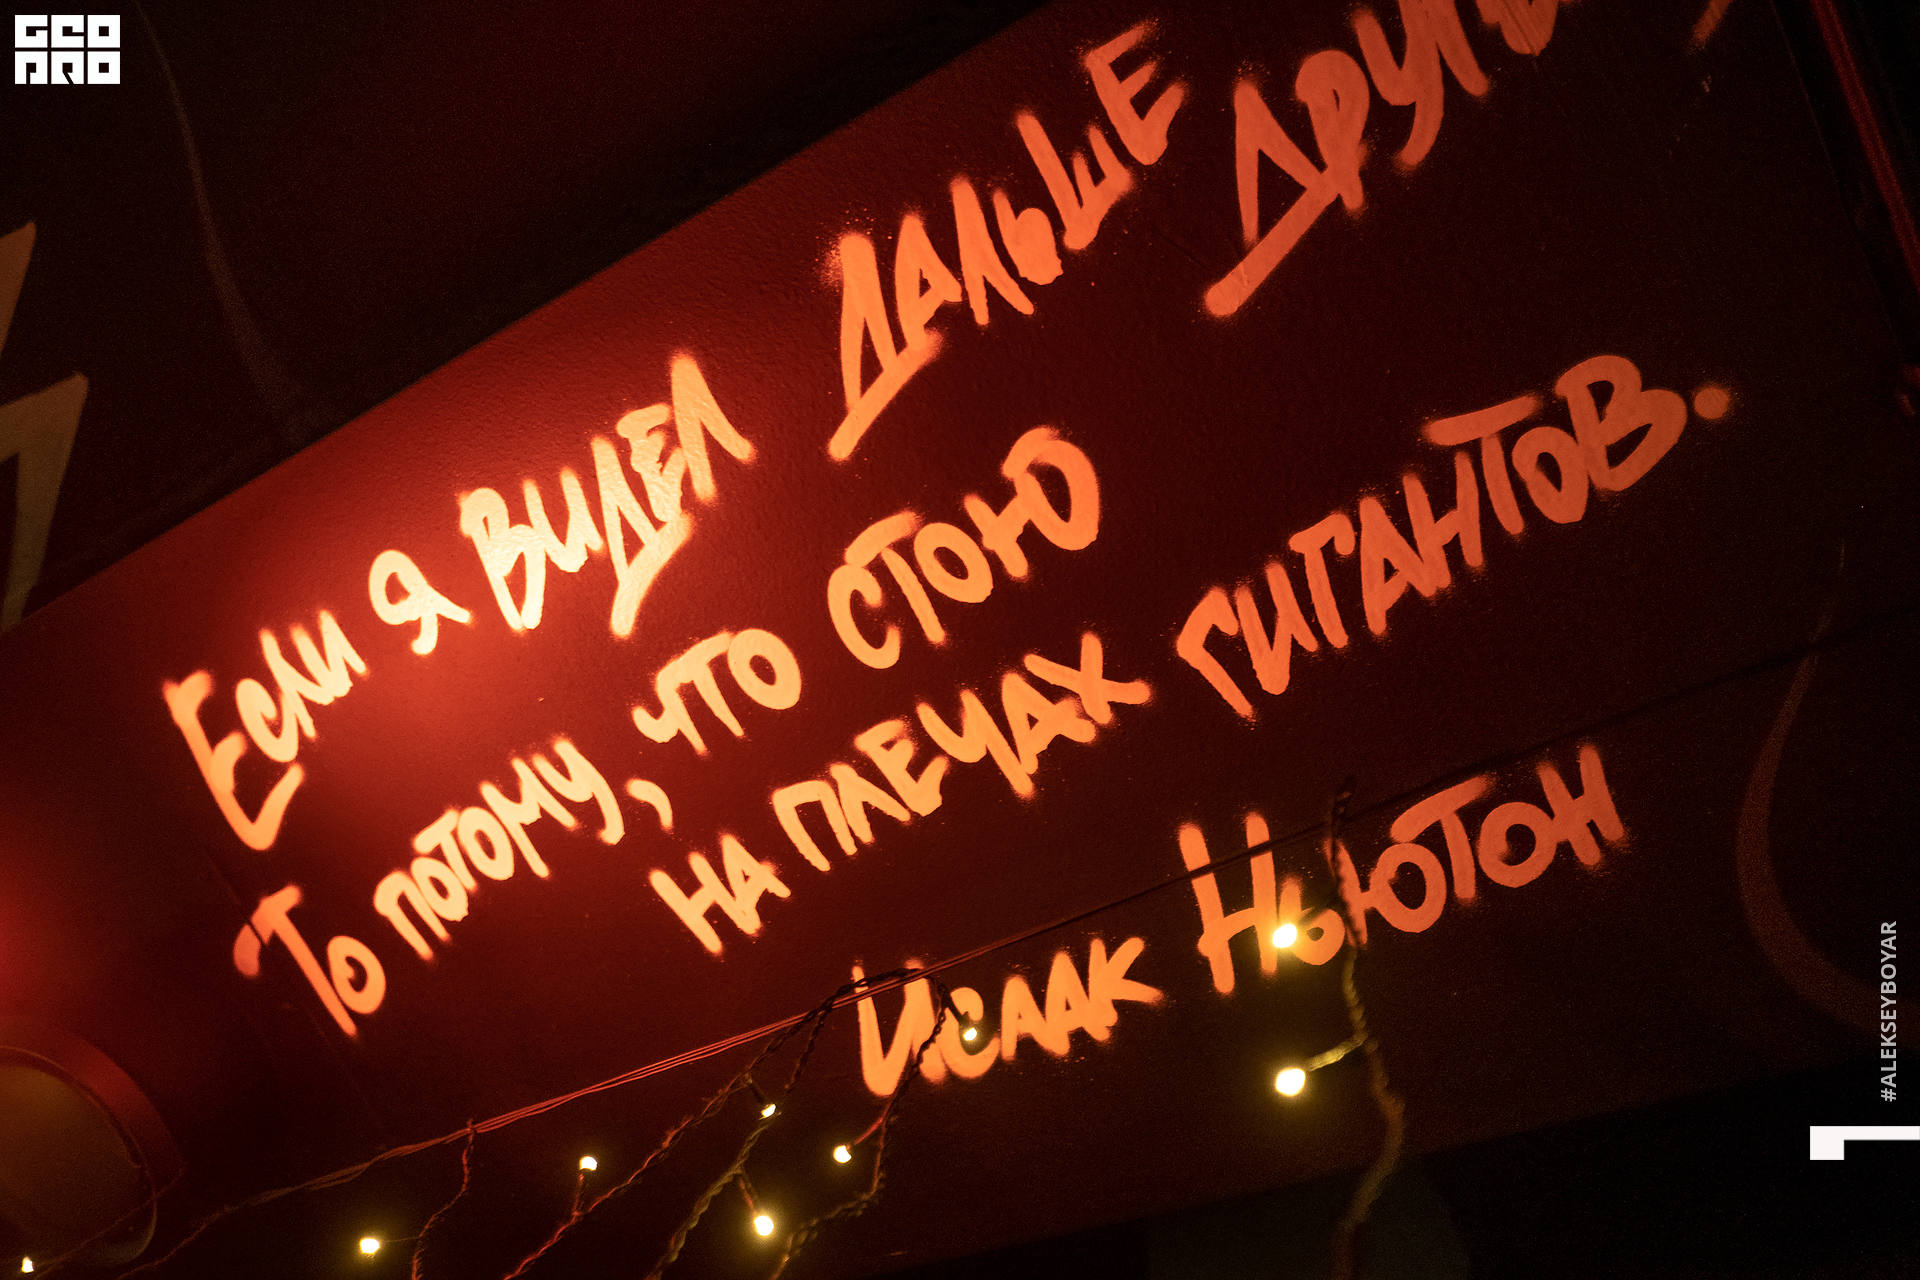 GEO
PRO
Если я видел дальше
То потому, что стою
на плечах гигантов.
Исаак Ньютон
#ALEKSEYBOYAR